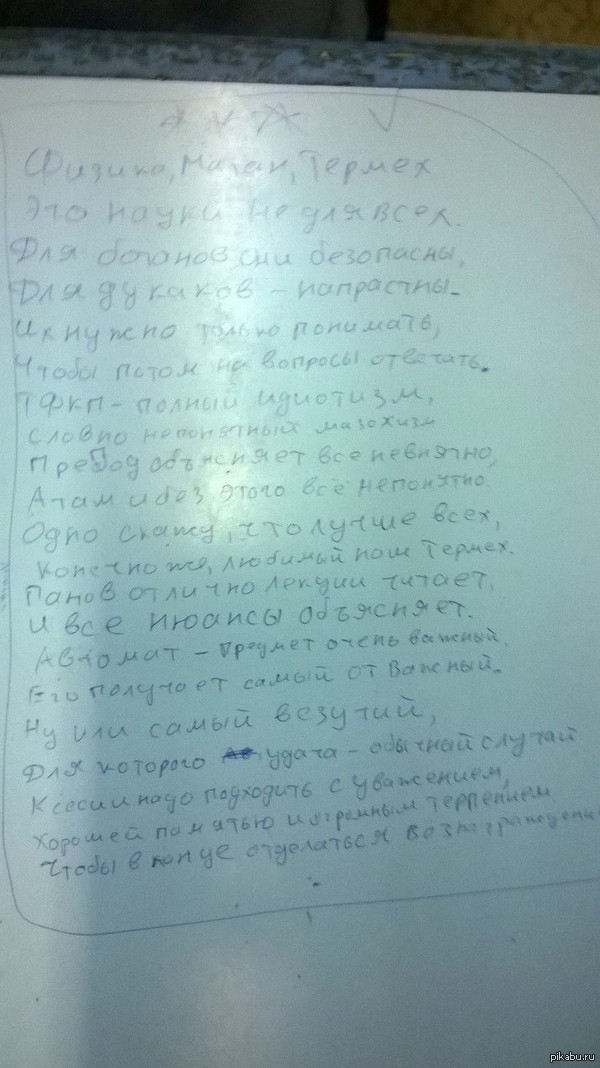 Физика, Матан, Термех
Это науки не для всех.
Для ботанов они безопасны,
Для дукаков - напрастны.
Их нужно только понимать,
Чтобы потом на вопросы отвечать.
ТФКП - полный идиотизм,
Словно непонятный мазохизм
Препод объясняет все невнятно,
А там и без этого всё непонятно.
Одно скажу, что лучше всех,
Конечно же, любимый наш Термех.
Панов отлично лекции читает,
И все нюансы объясняет.
Автомат - предмет очень важный.
Его получает самый от Важный.
Ну или самый везучий,
Для которого удача - обычный случай
К сесии надо подходить с уважением,
Хорошей памятью и огромным терпением
Чтобы в конце отделаться
pikabu.ru